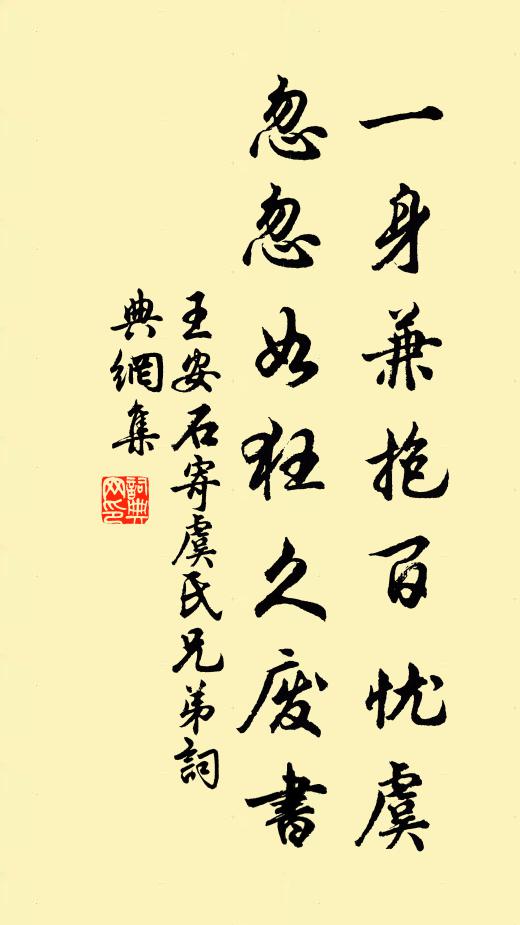 一身兼抱百忧虞
忽忽如狂久废書
王安石寄虞氏兄弟詞
典網集
詞典網印